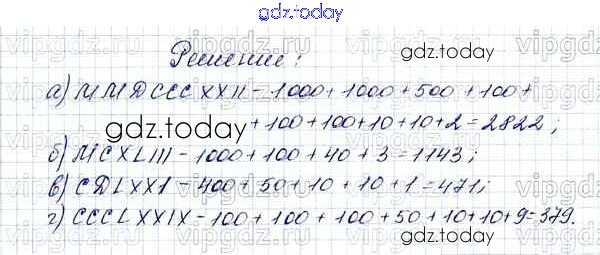 gdz.today
Решение:
а) MMDCCCXXII - 1000 + 1000 + 500 + 100 +
+ 100 + 100 + 10 + 10 + 2 = 2822;
gdz.today
б) MCXLIII - 1000 + 100 + 40 + 3 = 1143;
в) CDLXXI - 400 + 50 + 10 + 10 + 1 = 471;
г) CCCLXXIX - 100 + 100 + 100 + 50 + 10 + 10 + 9 = 379.
gdz.today
gdz.today
gdz.today